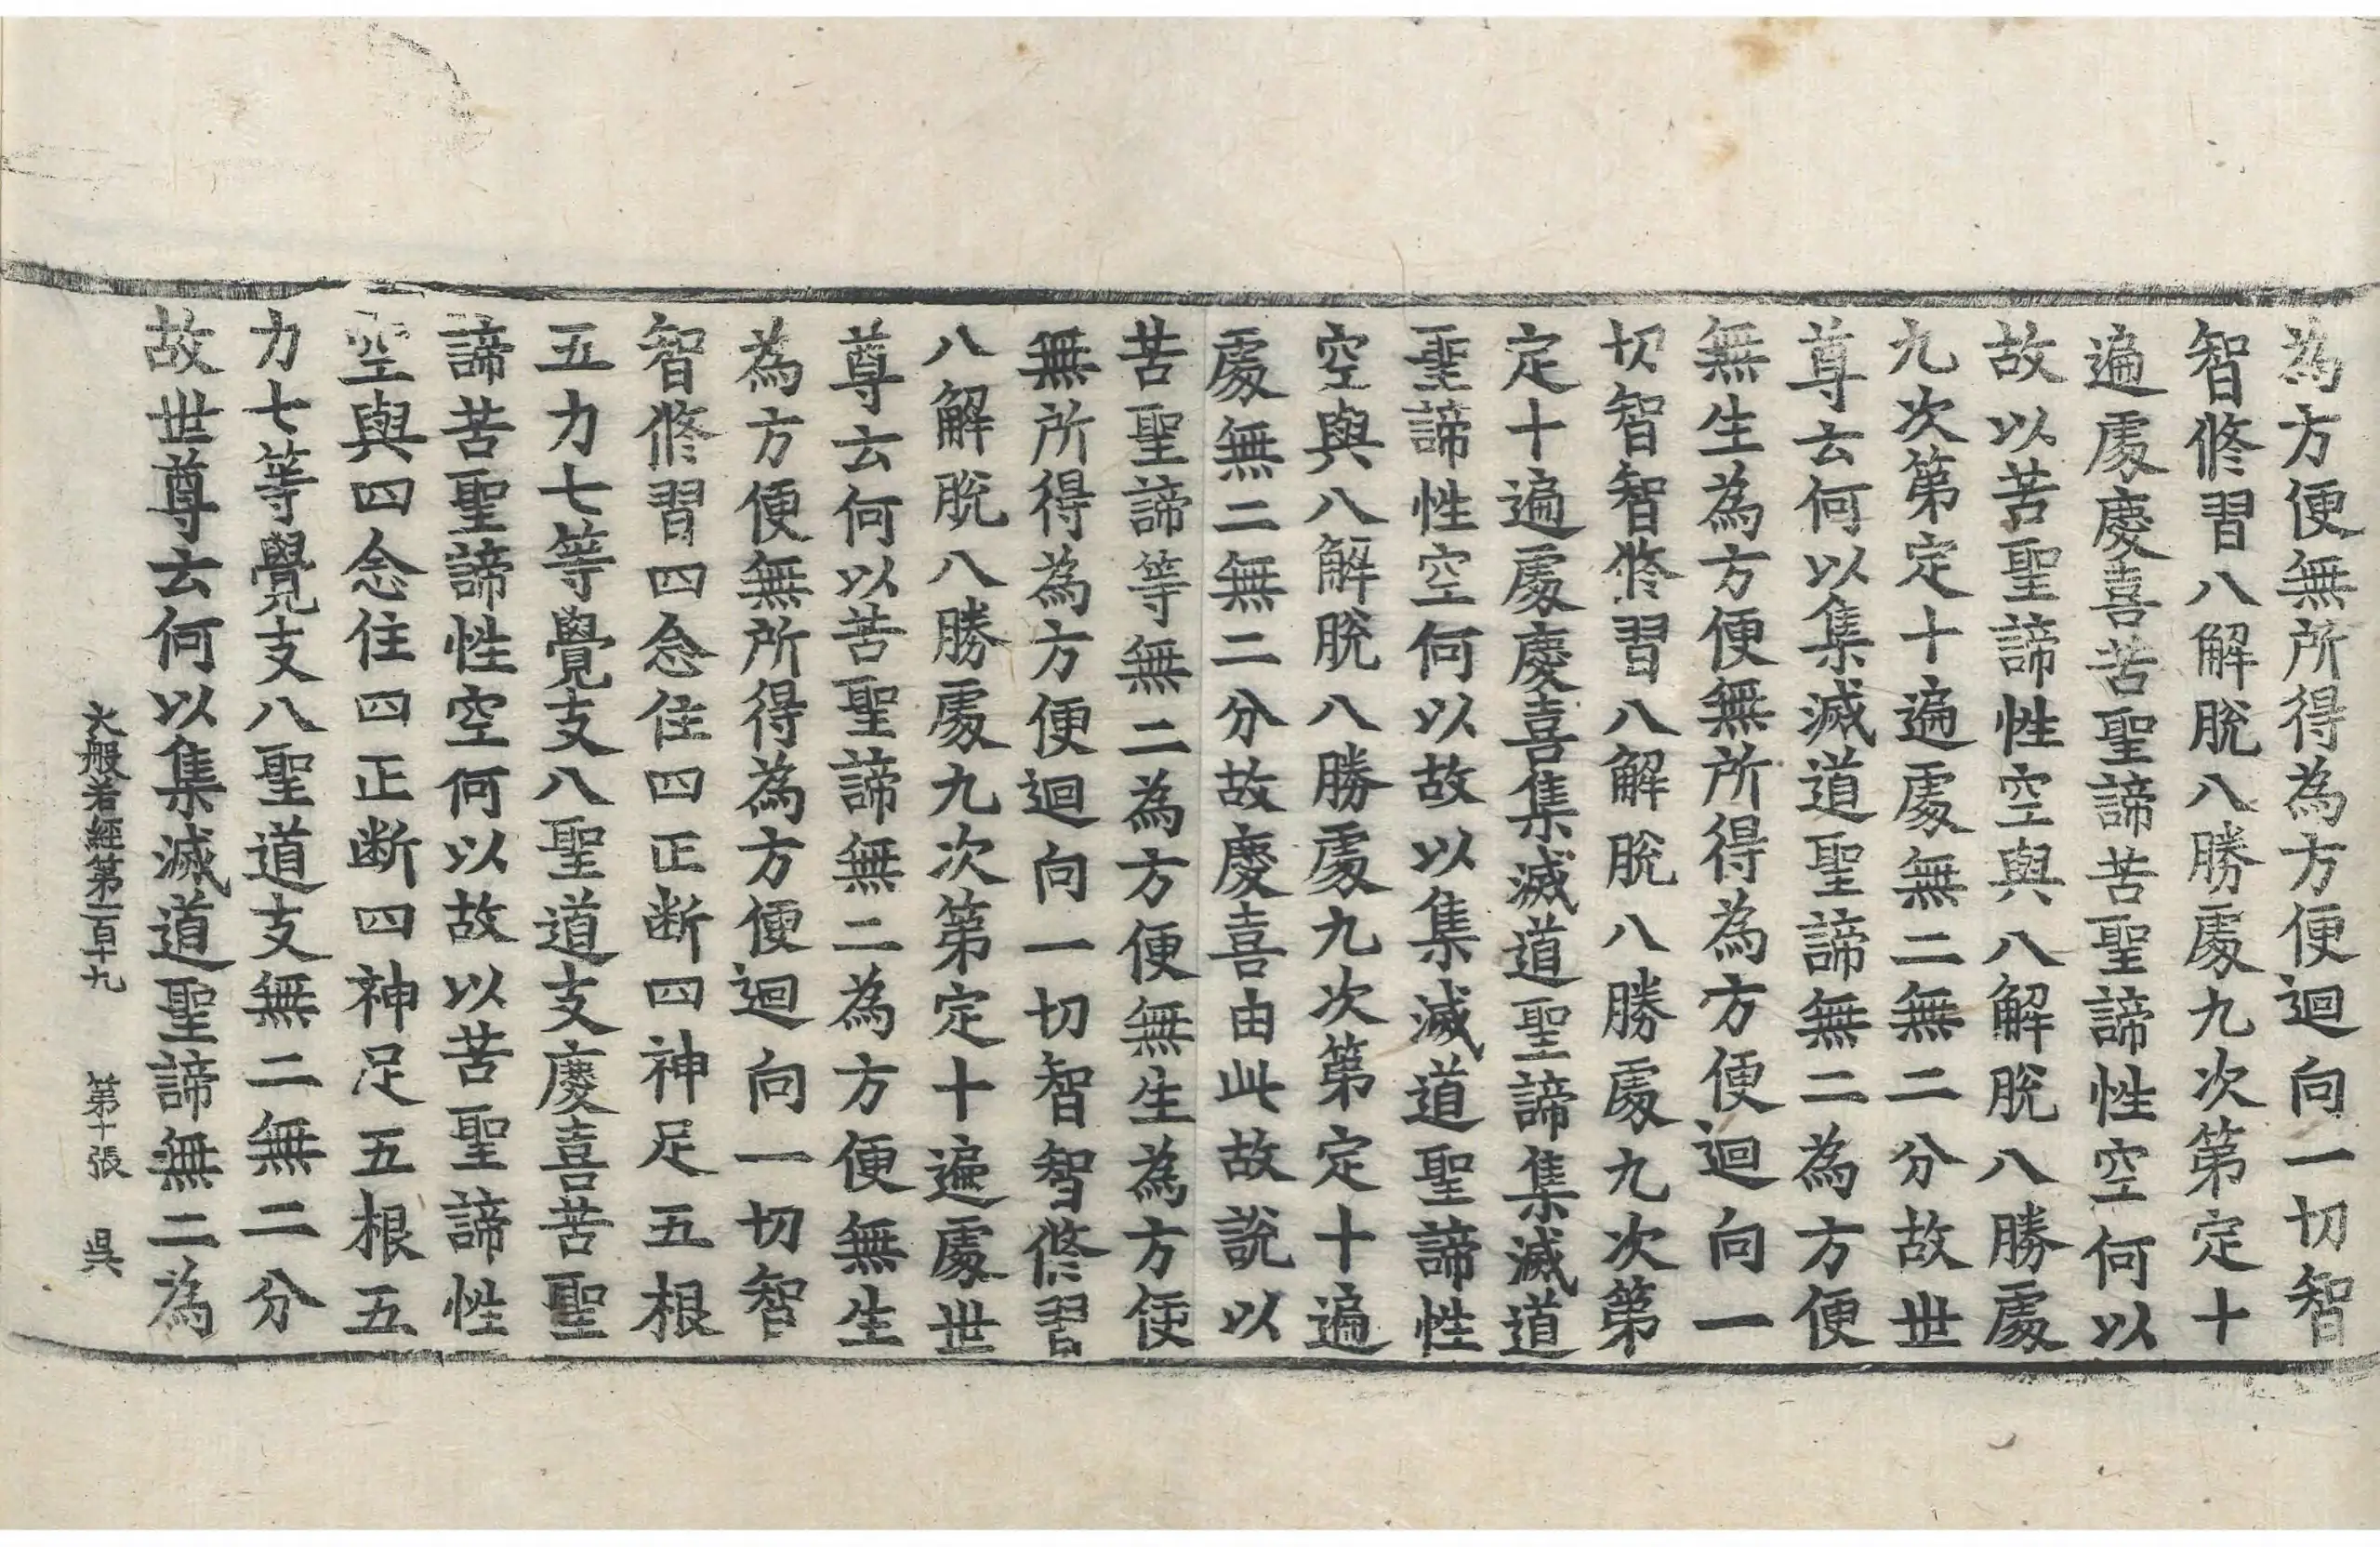 為方便無所得為方便迴向一切智
智修習八解脫八勝處九次第定十
遍處慶喜苦聖諦苦聖諦性空何以
故以苦聖諦性空與八解脫八勝處
九次第定十遍處無二無二分故世
尊云何以集滅道聖諦無二為方便
無生為方便無所得為方便迴向一
切智智修習八解脫八勝處九次第
定十遍處慶喜集滅道聖諦集滅道
聖諦性空何以故以集滅道聖諦性
空與八解脫八勝處九次第定十遍
處無二無二分故慶喜由此故說以
苦聖諦等無二為方便無生為方便
無所得為方便迴向一切智智修習
八解脫八勝處九次第定十遍處世
尊云何以苦聖諦無二為方便無生
為方便無所得為方便迴向一切智
智修習四念住四正断四神足五根
五力七等覺支八聖道支慶喜苦聖
諦苦聖諦性空何以故以苦聖諦性
空與四念住四正断四神足五根五
力七等覺支八聖道支無二無二分
故世尊云何以集滅道聖諦無二為
大般若經第一百十九 第十張 吳